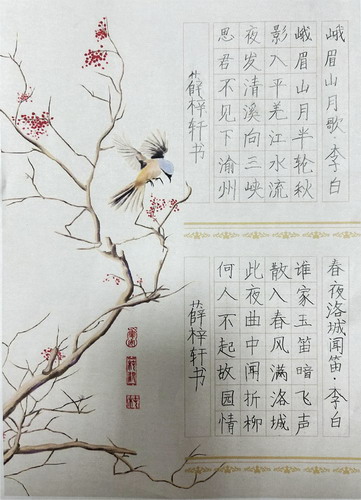 峨眉山月歌·李白
峨眉山月半轮秋
影入平羌江水流
夜发清溪向三峡
思君不见下渝州
薛梓轩书
春夜洛城闻笛·李白
谁家玉笛暗飞声
散入春风满洛城
此夜曲中闻折柳
何人不起故园情
薛梓轩书